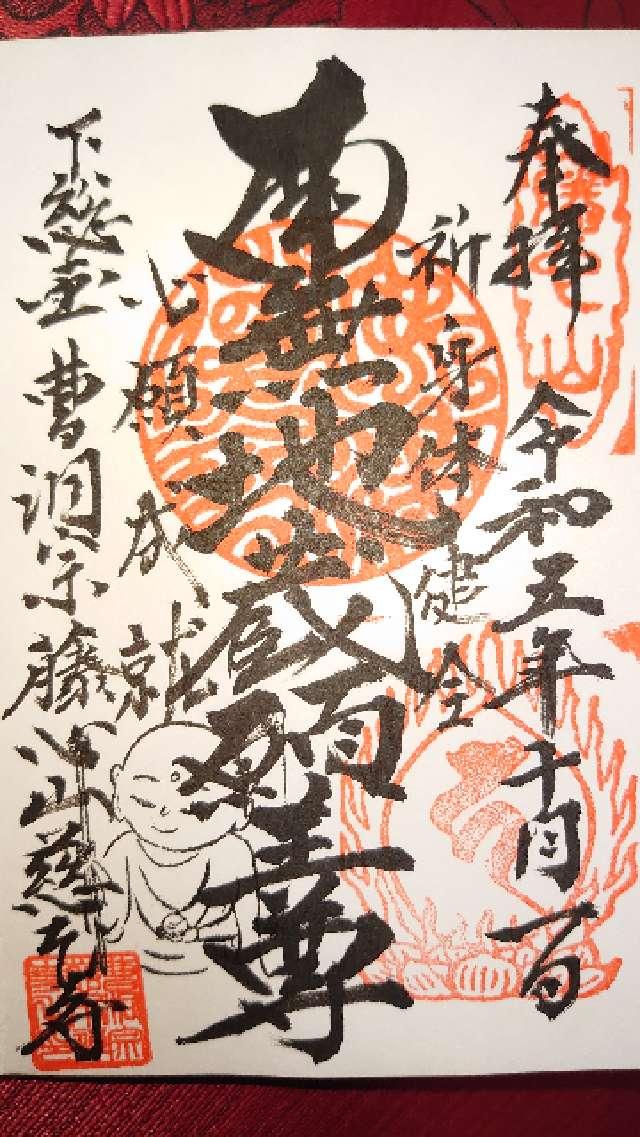 奉拝 令和五年十月一日
祈身体健全
南無地蔵願王尊
心願成就
下総国 曹洞宗藤心山慈本寺